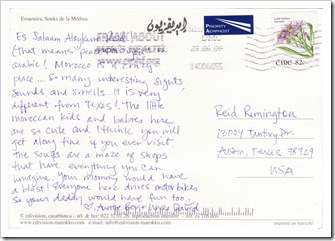 Essaouira, Souks de la Médina
Es Salaam Alaykum Reid
(that means peace be upon you
arabic! Morocco is a crazy
place... so many interesting sights
sounds and smells. It is very
different from Texas! The little
moroccan kids and babies here
are so cute and I think you will
get along fine if you ever visit.
The souks are a maze of shops
that have everything you can
imagine. Your mommy would have
a blast! Everyone here drives motor bikes
so your daddy would have fun too.
PRIORITY
AIRPOST
ÉIRE 82c
Reid Remington
Austin, Texas 78729
USA
© edivision, casablanca - tel & fax
www.edivision-marokko.com
imprimé en Autriche